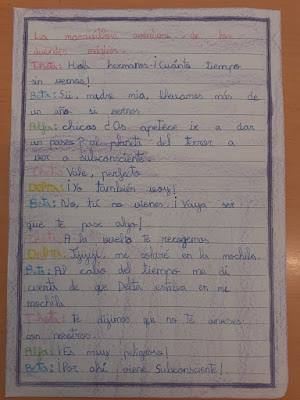 La maravillosa aventura de los
duendes mágicos.
Theta: Hola hermanos ¡Cuánto tiempo
sin vernos!
Beta: Sii, madre mia, llevamos más de
un año sin vernos
Alfa: chicos ¿Os apetece ir a dar
un paseo? al planeta del terror a
ver a subconsciente.
Theta: Vale, perfecto
Delta: ¡Yo también voy!
Beta: No, tú no vienes. ¡Vaya ser
que te pase algo!
Theta: A la vuelta te recogemos
Delta: Jijijiji, me colaré en la mochila.
Beta: Al cabo del tiempo me di
cuenta de que Delta estaba en mi
mochila
Theta: te dijimos que no te
con nosotros.
Alfa: ¡Es muy peligroso!
Beta: ¡Por ahí viene Subconsciente!